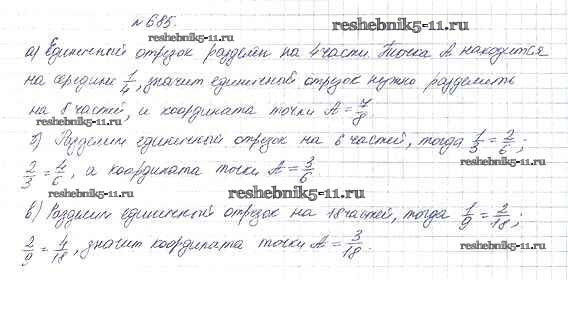 №685.
reshebnik5-11.ru
reshebnik5-11.ru
а) Единичный отрезок разделён на 4 части. Точка А находится
на середине 1/4, значит единичный отрезок нужно разделить
на 8 частей, и координата точки А = 7/8
reshebnik5-11.ru
б) Разделим единичный отрезок на 6 частей, тогда 1/3 = 2/6;
reshebnik5-11.ru
2/3 = 4/6, а координата точки А = 3/6
reshebnik5-11.ru
reshebnik5-11.ru
в) Разделим единичный отрезок на 18 частей, тогда 1/9 = 2/18;
2/9 = 4/18, значит координата точки А = 3/18.
reshebnik5-11.ru